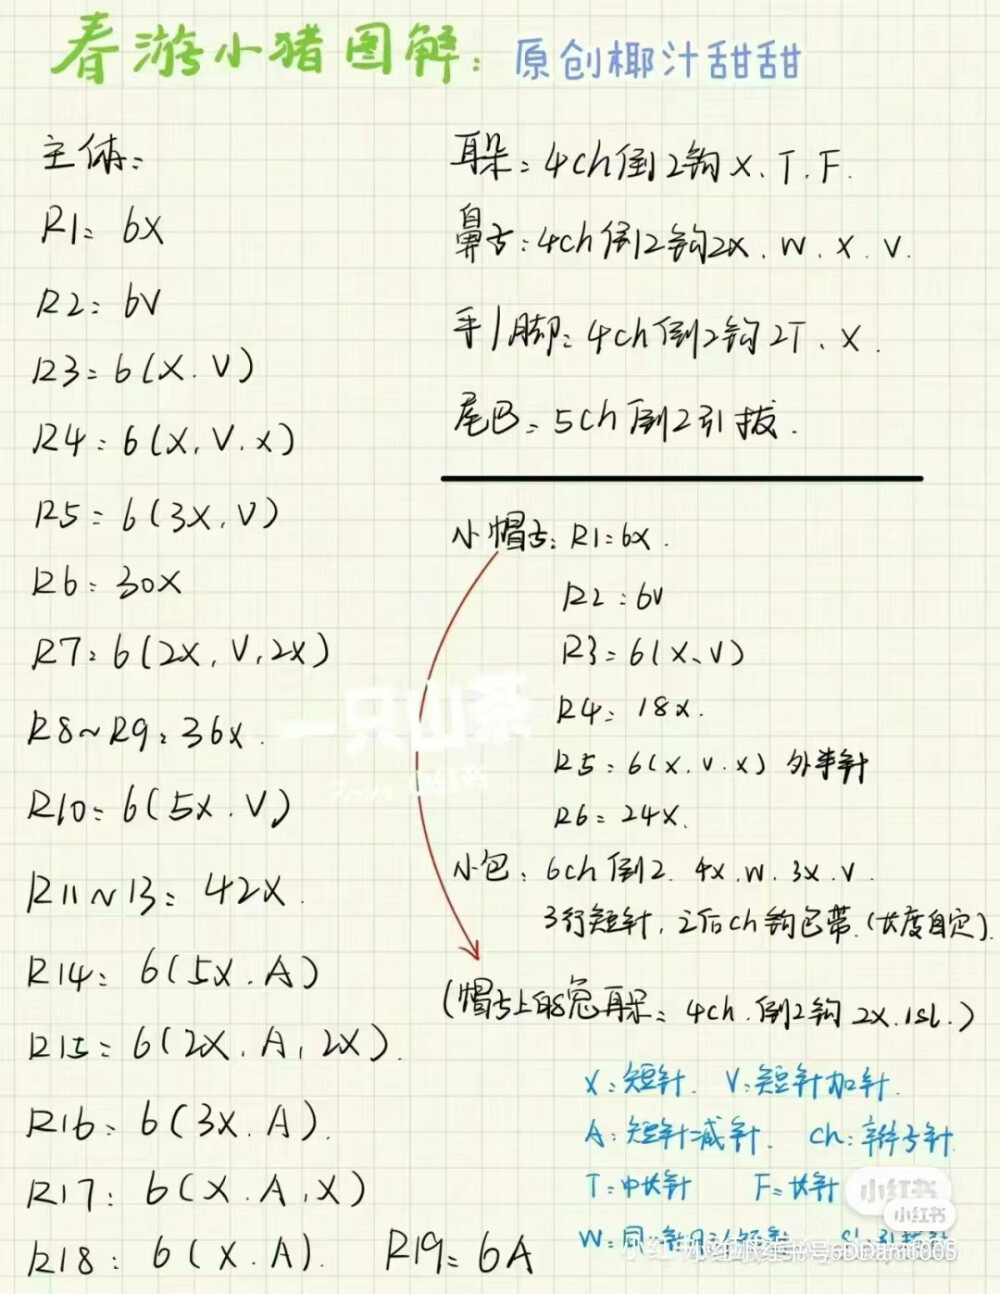 春游小猪图解：原创椰汁甜甜
主体：
R1：6X
R2：6V
R3：6(X.V)
R4：6(X.V.X)
R5：6(3X.V)
R6：30X
R7：6(2X,V,2X)
R8~R9：36X.
R10：6(5X.V)
R11~13：42X.
R14：6(5X.A)
R15：6(2X.A,2X).
R16：6(3X.A).
R17：6(X.A,X)
R18：6(X.A).
R19：6A
耳朵：4ch倒2钩X、T、F.
鼻子：4ch倒2钩2X、W、X、V.
手/脚：4ch倒2钩2T、X.
尾巴：5ch倒2引拔.
小帽子：R1：6X.
R2：6V
R3：6(X、V)
R4：18X.
R5：6(X.V.X) 外半针
R6：24X.
小包：6ch倒2. 4X.W.3X.V.
3行短针，之后ch钩包带.(长度自定).
(帽子上的兔耳朵：4ch.倒2钩 2X.1sl.)
X：短针. V：短针加针.
A：短针减针. ch：辫子针
T：中长针 F：长针
W：同一针
一只山条
小红书
小红书